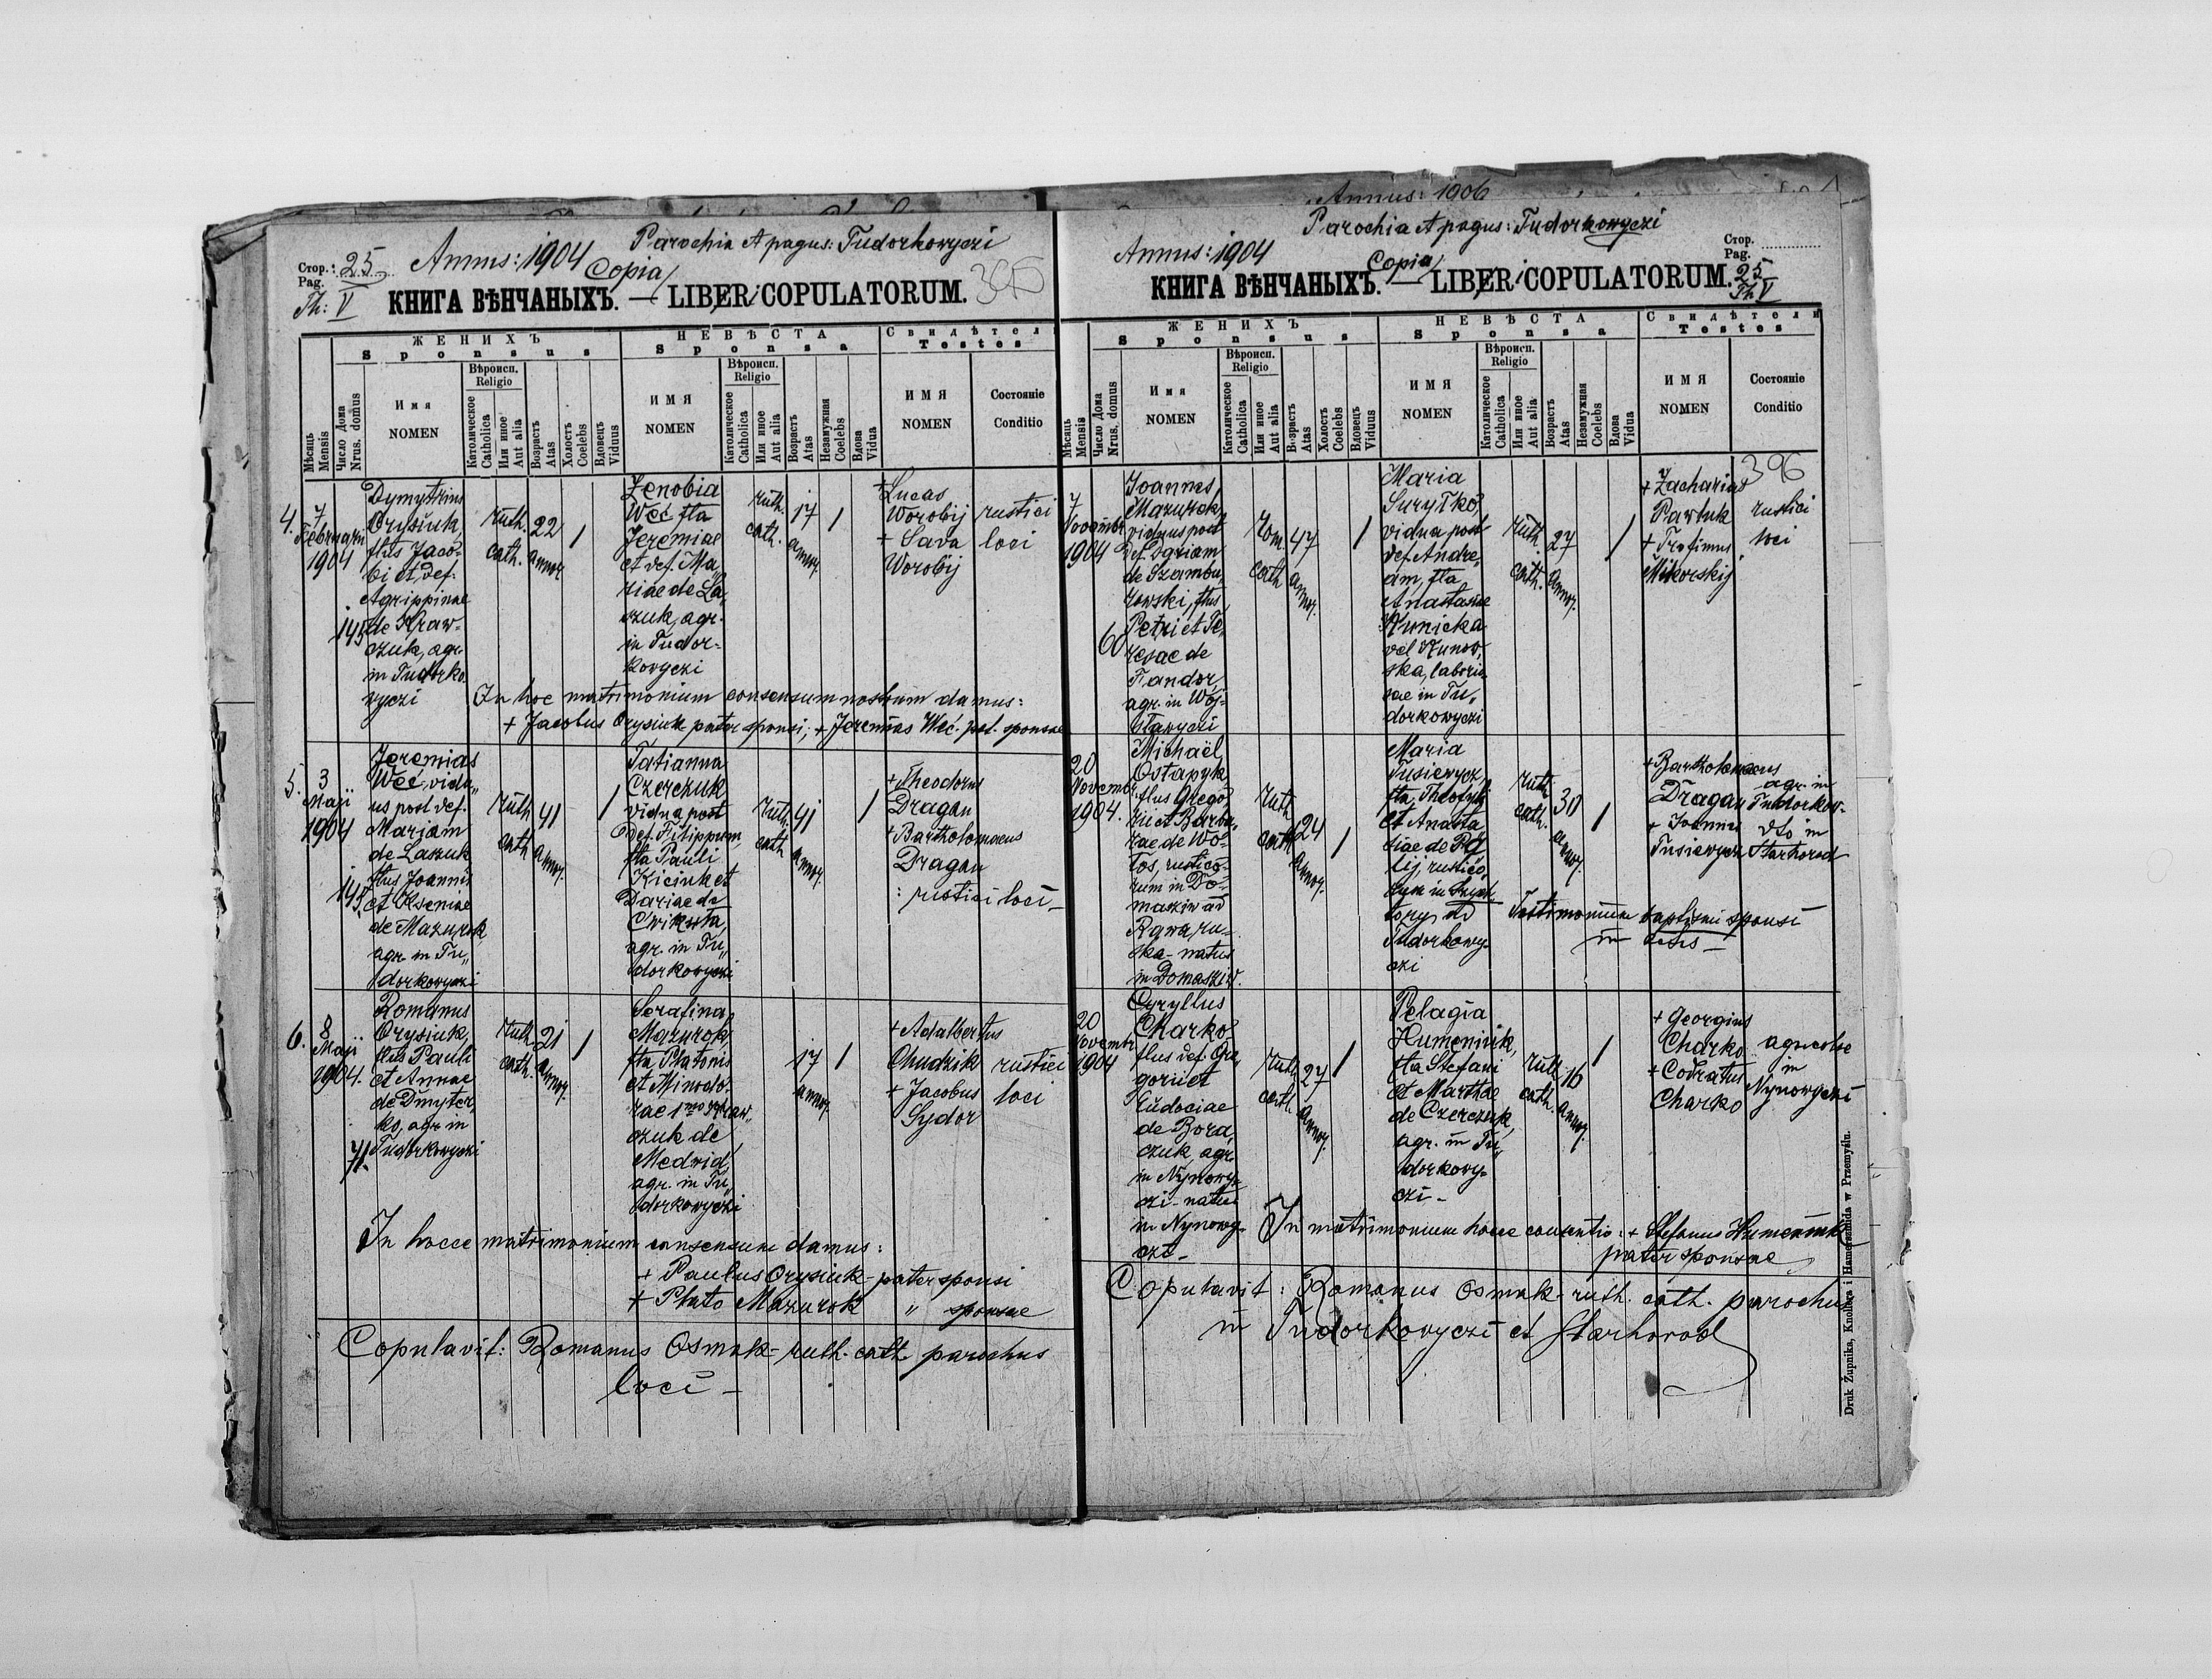 Annus: 1906
Parochia et pagus: Tudorkowyczi
Annus: 1904
Copia
Стор.: 25
Pag.
Th: V
395
КНИГА ВѢНЧАНЫХЪ. — LIBER COPULATORUM.
ЖЕНИХЪ
Sponsus
НЕВѢСТА
Sponsa
Свидѣтели
Testes
Мѣсяць
Mensis
Число Дома
Nrus. domus
Имя
NOMEN
Вѣроисп.
Religio
Католическое
Catholica
Или иное
Aut alia
Возрастъ
Atas
Холостъ
Coelebs
Вдовецъ
Viduus
ИМЯ
NOMEN
Вѣроисп.
Religio
Католическое
Catholica
Или иное
Aut alia
Возрастъ
Atas
Незамужная
Coelebs
Вдова
Vidua
ИМЯ
NOMEN
Состояніе
Conditio
4.
7
Februarii
1904
145
Dymytrius
Orysiuk,
flus Jaco-
bi et def.
Agrippinae
de Kraw-
czuk, agr.
in Tudorko
wyczi
ruth.
cath.
22
annor.
/
Zenobia
Weć fla
Jeremiae
et def. Ma,,
riae de La,,
szuk, agr.
in Tudor-
kowyczi
ruth.
cath.
17
annor.
/
+ Lucas
Worobij
+ Sava
Worobij
rustici
loci
In hoc matrimonium consensum nostrum damus:
+ Jacobus Orysiuk pater sponsi, + Jeremias Weć. pat. sponsae
5.
3
Maji
1904
145
Jeremias
Weć, vidu,,
us post def.
Mariam
de Laszuk
flus Joannis
et Kseniae
de Mazurok,
agr. in Tu,,
dorkowyczi
ruth
cath
41
annor.
/
Tatianna
Czerczuk
vidua post
def. Filippum,
fla Pauli
Kiciuk et
Dariae de
Cwikuła,
agr. in Tu,,
dorkowyczi
ruth.
cath
41
annor.
/
+ Theodorus
Dragan
+ Bartholomaeus
Dragan
: rustici loci –
6.
8
Maji
1904.
71.
Romanus
Orysiuk,
flus Pauli
et Annae
de Dmyter,
ko, agr. in
Tudorkowyczi
ruth.
cath.
21
annor.
/
Serafina
Mazurok,
fla Platonis
et Minodo,
rae 1mo Kraw,,
czuk de
Medwid,
agr. in Tu,,
dorkowyczi
17
annor.
/
+ Adalbertus
Chudzik
+ Jacobus
Sydor
rustici
loci
In hocce matrimonium consensum damus:
+ Paulus Orysiuk – pater sponsi
+ Plato Mazurok " sponsae
Copulavit: Romanus Osmak – ruth. cath. parochus
loci –
Parochia et pagus: Tudorkowyczi
Annus: 1904
Copia
Стор.
Pag. 25
Th V
КНИГА ВѢНЧАНЫХЪ. — LIBER COPULATORUM.
ЖЕНИХЪ
Sponsus
НЕВѢСТА
Sponsa
Свидѣтели
Testes
Мѣсяць
Mensis
Число Дома
Nrus. domus
Имя
NOMEN
Вѣроисп.
Religio
Католическое
Catholica
Или иное
Aut alia
Возрастъ
Atas
Холостъ
Coelebs
Вдовецъ
Viduus
ИМЯ
NOMEN
Вѣроисп.
Religio
Католическое
Catholica
Или иное
Aut alia
Возрастъ
Atas
Незамужная
Coelebs
Вдова
Vidua
ИМЯ
NOMEN
Состояніе
Conditio
396
7
Novembr.
1904
60
Joannes
Mazurok,
viduus post
def. Dariam
de Szambu,
rowski, flus
Petri et Te,
resae de
Fandor,
agr. in Woj-
sławyczi
rom.
cath
47
annor.
/
Maria
vidua post
def. Andre,
am, fla
Anastasiae
Kunicka
vel Kunow,
ska, laborio
sae in Tu,,
dorkowyczi
ruth
cath.
27
annor.
/
+ Zacharias
Pawluk
+ Trofimus
Mikorskij
rustici
loci
20
Novembr.
1904.
Michaël
Ostapyk,
flus Grego,
rii et Barba,
rae de Wo-
łos, rustico-
rum in Do-
maszw ad
Rawa ru-
ska – natus
in Domaszw.
ruth
cath
24
annor.
/
Maria
Tusiewycz,
fla Theofyli
et Anasta
siae de
rustico,
Tudorkowy-
czi
ruth.
cath.
30
annor.
/
+ Bartholomaeus
Dragan
+ Joannes
Tusiewycz
agr. in
Tudorkow.
dto in
Starhorod
Testimonium baptismi sponsi
in actis –
20
Novembr.
1904
Cyryllus
Charko
flus def. Gre,
gorii et
Eudociae
de Bora,
czuk, agr.
in Nynowy-
czi – natus
in Nynowy-
czi –
ruth
cath.
27
annor.
/
Pelagia
Humeniuk,
fla Stefani
et Marthae
de Czerczuk,
agr. in Tu,
dorkowy-
czi –
ruth
cath.
16
annor.
/
+ Georgius
Charko
+ Codratus
Charko
agricolae
in
Nynowyczi
In matrimonium hocce consentio: + Stefanus Humeniuk
pater sponsae
Copulavit: Romanus Osmak – ruth. cath. parochus
in Tudorkowyczi et Starhorod
Druk Żupnika, Knollera i Hamerschmida w Przemyślu.